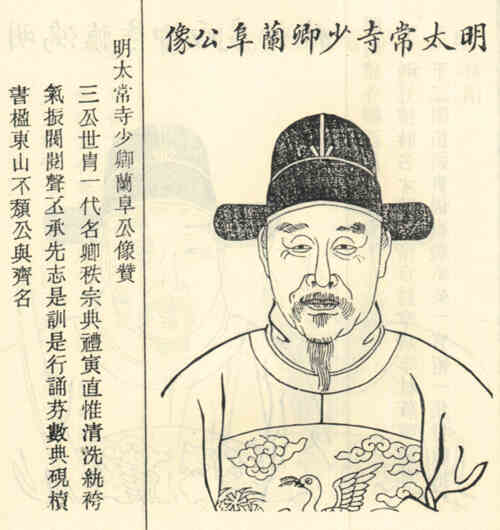 明太常寺少卿蘭阜公像
明太常寺少卿蘭阜公像贊
三公世胄一代名卿秩宗典禮寅直惟清洗紈袴
氣振閥閱聲丕承先志是訓是行誦芬數典硯
書楹東山不頹公與齊名